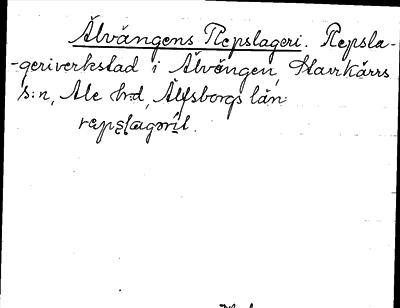 Älvängens Repslageri. Repsla-
-geriverkstad i Älvängen, Starrkärrs
s:n, Ale hrd, Älfsborgs län.